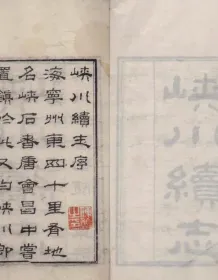 峽川續志
峽川續志序
海寧州東四十里有地
名峽石者唐會昌中嘗
置鎮於此又曰峽川即